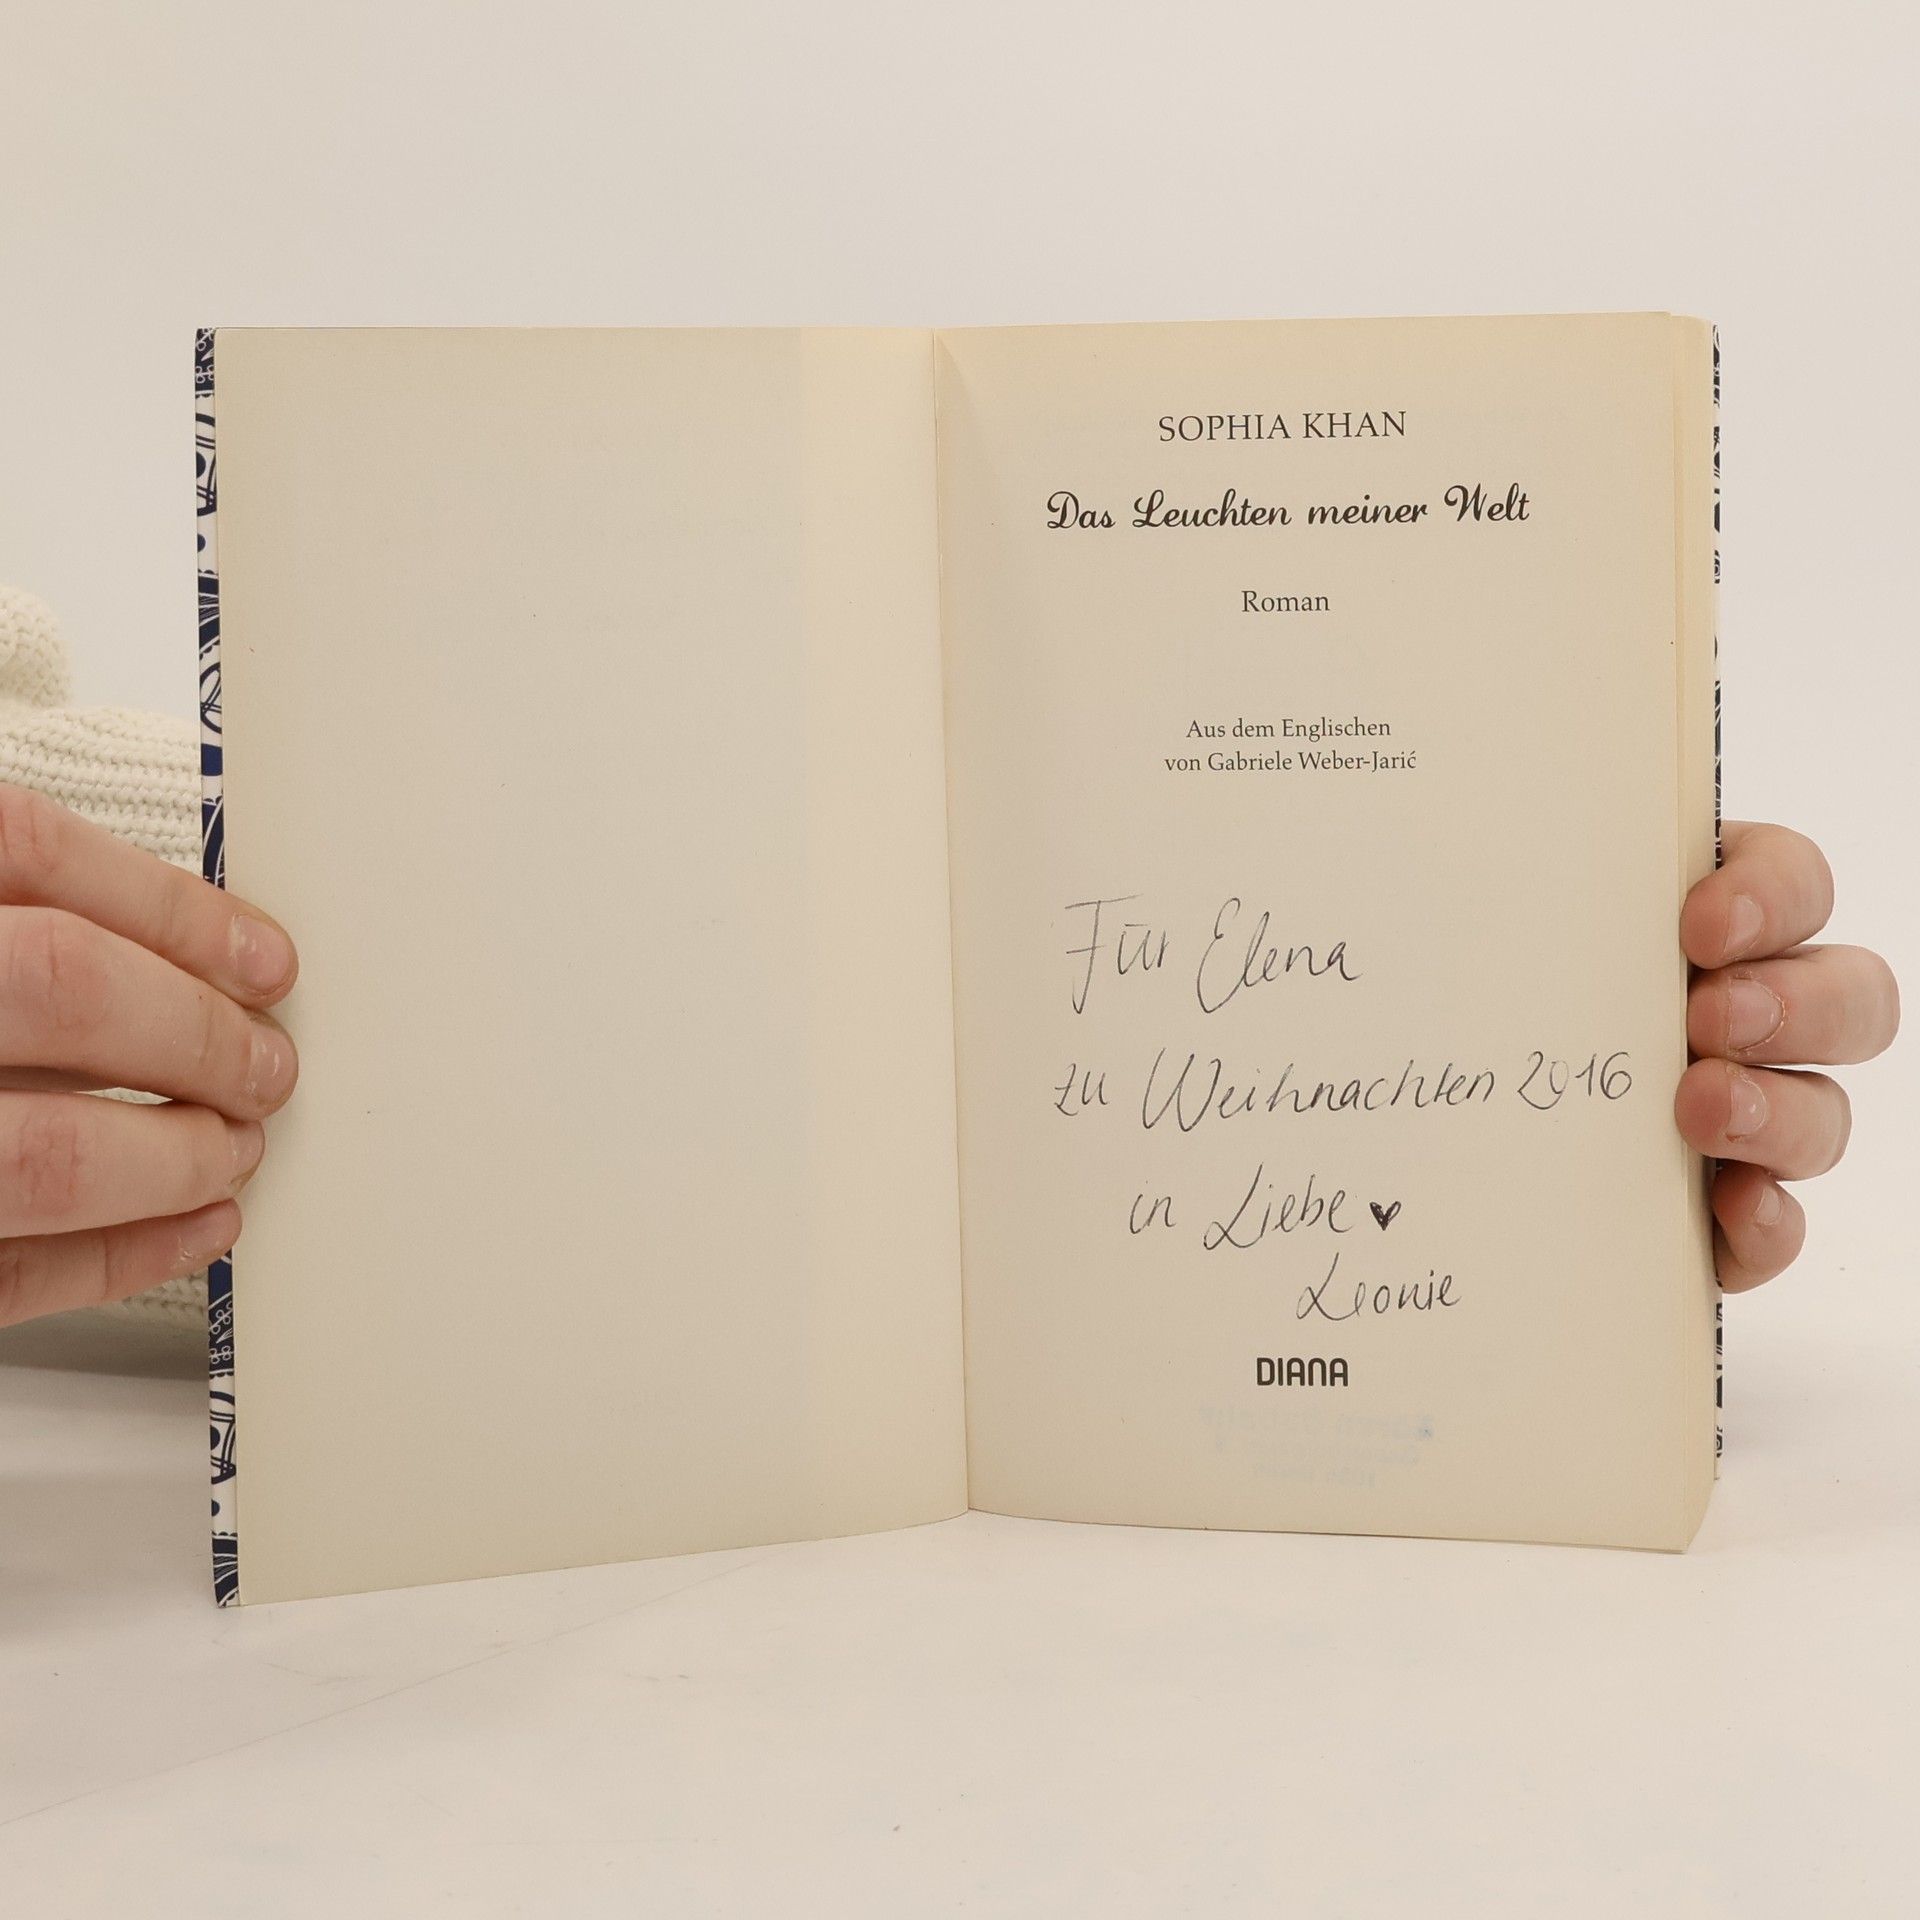 SOPHIA KHAN
Das Leuchten meiner Welt
Roman
Aus dem Englischen
von Gabriele Weber-Jarić
Für Elena
zu Weihnachten 2016
in Liebe ♥
Leonie
DIANA